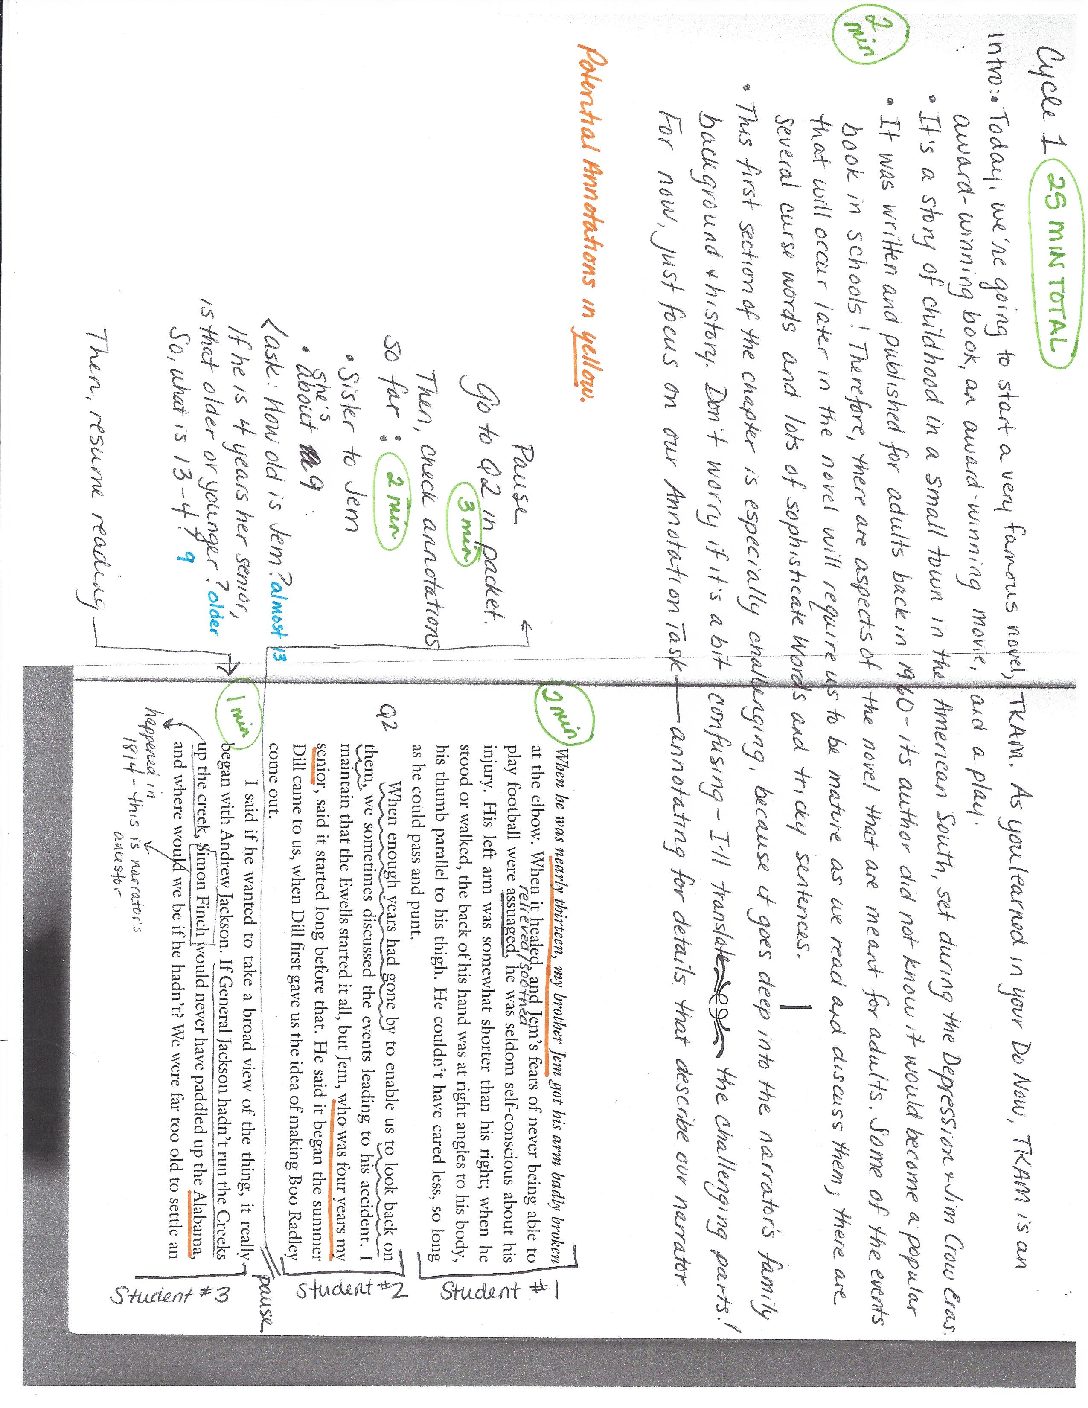 Cycle 1 25 MIN TOTAL
2 min
Intro: • Today, we're going to start a very famous novel, TKAM. As you learned in your Do Now, TKAM is an
award-winning book, an award-winning movie, and a play.
• It's a story of childhood in a small town in the American South, set during the Depression & Jim Crow Eras.
• It was written and published for adults back in 1960 - its author did not know it would become a popular
book in schools! Therefore, there are aspects of the novel that are meant for adults. Some of the events
that will occur later in the novel will require us to be mature as we read and discuss them; there are
several curse words and lots of sophisticate words and tricky sentences.
• This first section of the chapter is especially challenging, because it goes deep into the narrator's family
background & history. Don't worry if it's a bit confusing - I'll translate the challenging parts!
For now, just focus on our Annotation Task — annotating for details that describe our narrator
Potential Annotations in yellow.
Pause
Go to Q2 in packet.
3 min
Then, check annotations
so far: 2 min
• Sister to Jem
• She's about 9
ask: How old is Jem? almost 13
If he is 4 years her senior,
is that older or younger? older
So, what is 13-4? 9
Then, resume reading
2 min
When he was nearly thirteen, my brother Jem got his arm badly broken
at the elbow. When it healed, and Jem's fears of never being able to
relieved/soothed
play football were assuaged, he was seldom self-conscious about his
injury. His left arm was somewhat shorter than his right; when he
stood or walked, the back of his hand was at right angles to his body,
his thumb parallel to his thigh. He couldn't have cared less, so long
as he could pass and punt.
Student #1
Q2
When enough years had gone by to enable us to look back on
them, we sometimes discussed the events leading to his accident. I
maintain that the Ewells started it all, but Jem, who was four years my
senior, said it started long before that. He said it began the summer
Dill came to us, when Dill first gave us the idea of making Boo Radley
come out.
Student #2
pause
1 min
I said if he wanted to take a broad view of the thing, it really
began with Andrew Jackson. If General Jackson hadn't run the Creeks
up the creek, Simon Finch would never have paddled up the Alabama,
and where would we be if he hadn't? We were far too old to settle an
Student #3
happened in
1814 - this is narrator's
ancestor